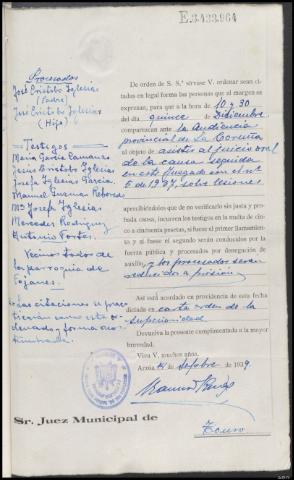 E.3423.964
Procesados
José Cristobo Iglesias
(Padre)
José Cristobo Iglesias
(Hijo)
Testigos
María García
Jesús Cristobo Iglesias
Josefa Iglesias García
Manuel Guzman
Mª Josefa Iglesias
Mercedes Rodriguez
Antonio Fortes.
Vecinos todos de
la parroquia de
Fojanes.
las citaciones se prac-
ticarán como está or-
denado y forma acos-
tumbrada.
De orden de S. S.ª sírvase V. ordenar sean ci-
tados en legal forma las personas que al margen se
expresan, para que a la hora de 10 y 30
del día quince de Diciembre
comparezcan ante la Audiencia
provincial de La Coruña
al objeto de asistir al juicio oral
de la causa seguida
en este Juzgado con el nº
5 de 1937, sobre lesiones
apercibiéndoles que de no verificarlo sin justa y pro-
bada causa, incurren los testigos en la multa de cin-
co a cincuenta pesetas, si fuese el primer llamamien-
to y si fuese el segundo serán conducidos por la
fuerza pública y procesados por denegación de
auxilio, y los procesados serán
reducidos a prisión
Así está acordado en providencia de esta fecha
dictada en carta orden de la
Superioridad
Devuelva la presente cumplimentada a la mayor
brevedad.
Viva V. muchos años.
Arzúa de Sepbre de 1939.
Sr. Juez Municipal de
Touro